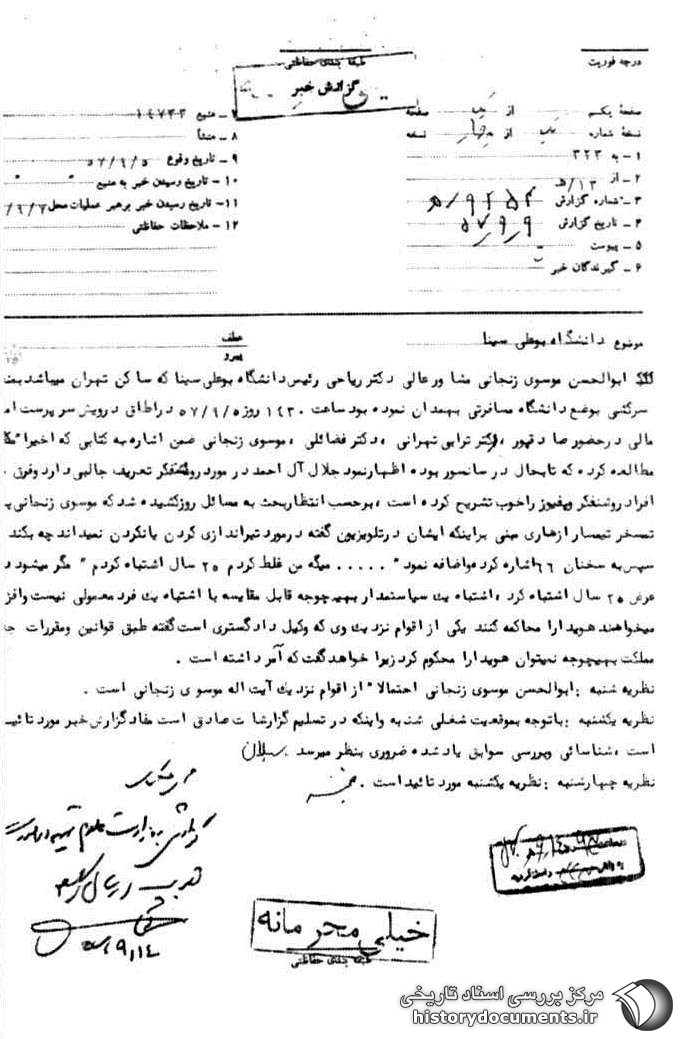 درجه فوریت
طبقه بندی حفاظتی
گزارش خبر
صفحه یکم از یک صفحه
نسخه شماره یک از چهار نسخه
۱ ـ به ۳۲۳
۲ ـ از ۱۳/ﻫ
۳ ـ شماره گزارش ۹۲۵۲/ﻫ
۴ ـ تاریخ گزارش ۵۷٫۹٫۹
۵ ـ پیوست
۶ ـ گیرندگان خبر
۷ ـ منبع ۱٤۷۳۳
۸ ـ منشأ
۹ ـ تاریخ وقوع ۵۷/۹/۵
۱۰ ـ تاریخ رسیدن خبر به منبع " "
۱۱ ـ تاریخ رسیدن خبر برهبر عملیات محل ۹/۷/
۱۲ ـ ملاحظات حفاظتی
موضوع دانشگاه بوعلی سینا
عطف
پیرو
ابوالحسن موسوی زنجانی مشاور عالی دکتر ریاحی رئیس دانشگاه بوعلی سینا که ساکن تهران میباشد
سرکشی بوضع دانشگاه مسافرتی بهمدان نموده بود ساعت ۱٤۳۰ روز ۵۷/۹/۵ در اطاق درویش سرپرست
مالی در حضور صادقپور ، دکتر ترابی تهرانی ، دکتر فضائلی ، موسوی زنجانی ضمن اشاره به کتابی که اخیرا"
مطالعه کرده که تابحال در سانسور بوده اظهار نمود جلال آل احمد در مورد روشنفکر تعریف جالبی دارد و فرق
افراد روشنفکر و غیره را خوب تشریح کرده است ، برحسب انتظار بحث به مسائل روز کشیده شد که موسوی زنجانی
تمسخر تیمسار ازهاری مبنی براینکه ایشان در تلویزیون گفته در مورد تیراندازی کردن یا نکردن نمیداند چه بکند
سپس به سخنان ۶۶ اشاره کرد و اضافه نمود " ..... میگه من غلط کردم ۲۵ سال اشتباه کردم " مگر میشود
عرض ۲۵ سال اشتباه کرد ، اشتباه یک سیاستمدار بهیچوجه قابل مقایسه با اشتباه یک فرد معمولی نیست وافزود
میخواهند هویدا را محاکمه کنند یکی از اقوام نزدیک وی که وکیل دادگستری است گفته طبق قوانین ومقررات
مملکت بهیچوجه نمیتوان هویدا را محکوم کرد زیرا خواهد گفت که آمر داشته است .
نظریه شنبه : ابوالحسن موسوی زنجانی احتمالا" از اقوام نزدیک آیت اله موسوی زنجانی است .
نظریه یکشنبه : باتوجه بموقعیت شغلی شنبه واینکه در تسلیم گزارشات صادق است مفاد گزارش خبر مورد تائید
است ، شناسائی وبررسی سوابق یاد شده ضروری بنظر میرسد . سبلان
نظریه چهارشنبه : نظریه یکشنبه مورد تائید است .
۵۷/۹/۱۴
خیلی محرمانه
طبقه بندی حفاظتی
مرکز بررسی اسناد تاریخی
historydocuments.ir